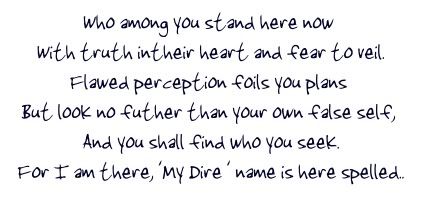 Who among you stand here now
With truth intheir heart and fear to veil.
Flawed perception foils you plans
But look no futher than your own false self,
And you shall find who you seek.
For I am there, 'My Dire ' name is here spelled..